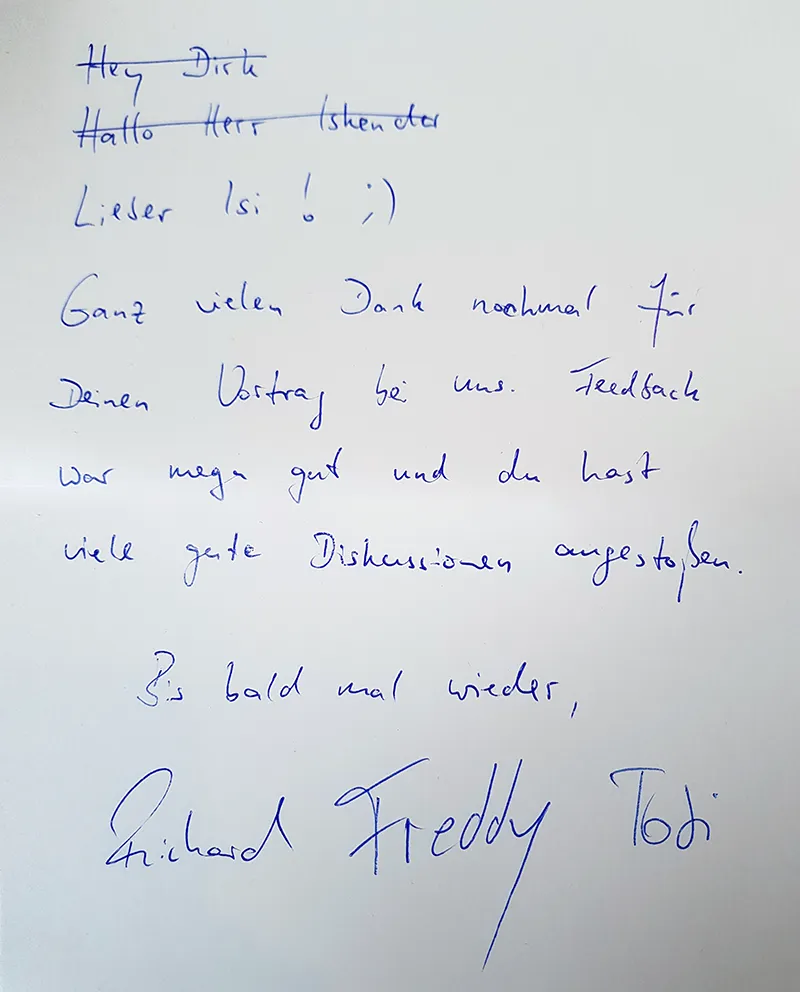 Hey Dirk
Hallo Herr Iskender
Lieber Isi ! ;)
Ganz vielen Dank nochmal für
Deinen Vortrag bei uns. Feedback
war mega gut und du hast
viele gute Diskussionen angestoßen.
Bis bald mal wieder,
Richard Freddy Tobi